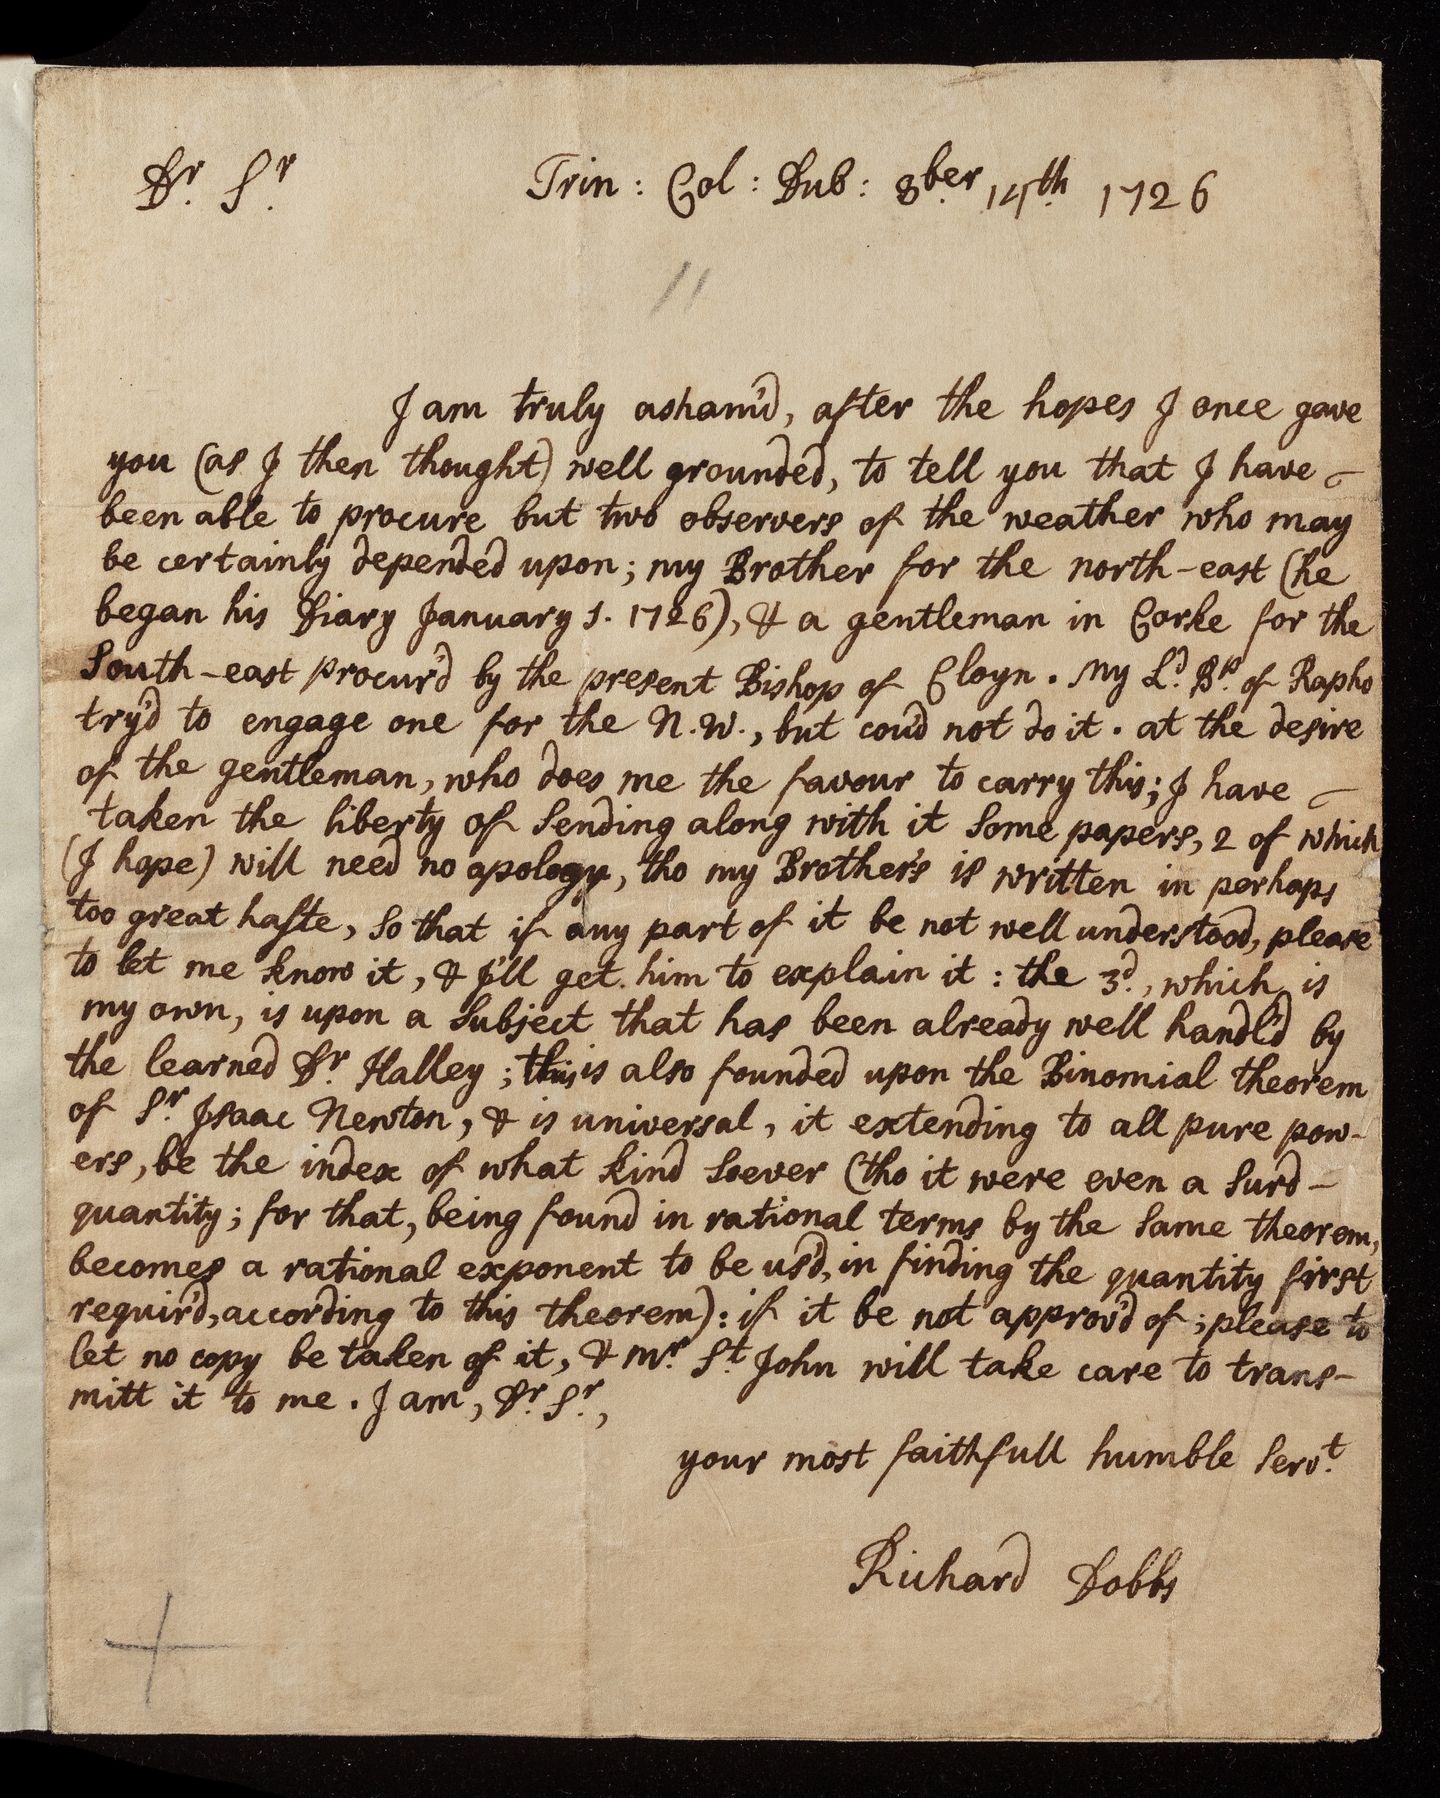 Dr. Sr. Trin: Col: Dub: 8ber. 14th. 1726
I am truly asham'd, after the hopes I once gave
you (as I then thought) well grounded, to tell you that I have
been able to procure but two observers of the weather who may
be certainly depended upon; my Brother for the north-east (he
began his Diary January 1. 1726), & a gentleman in Corke for the
South-east procur'd by the present Bishop of Cloyn. My Ld. Bp. of Rapho
try'd to engage one for the N.W., but cou'd not do it. at the desire
of the gentleman, who does me the favour to carry this; I have
taken the liberty of sending along with it some papers, 2 of which
(I hope) will need no apology, tho my Brother's is written in perhaps
too great haste, so that if any part of it be not well understood, please
to let me know it, & I'll get him to explain it: the 3d., which is
my own, is upon a subject that has been already well handl'd by
the learned Dr. Halley; this is also founded upon the Binomial theorem
of Sr. Isaac Newton, & is universal, it extending to all pure pow-
ers, be the index of what kind soever (tho it were even a surd-
quantity; for that, being found in rational terms by the same theorem,
becomes a rational exponent to be us'd, in finding the quantity first
requir'd, according to this theorem): if it be not approv'd of; please to
let no copy be taken of it, & Mr. St. John will take care to trans-
mitt it to me. I am, Dr. Sr.,
your most faithfull humble servt.
Richard Dobbs